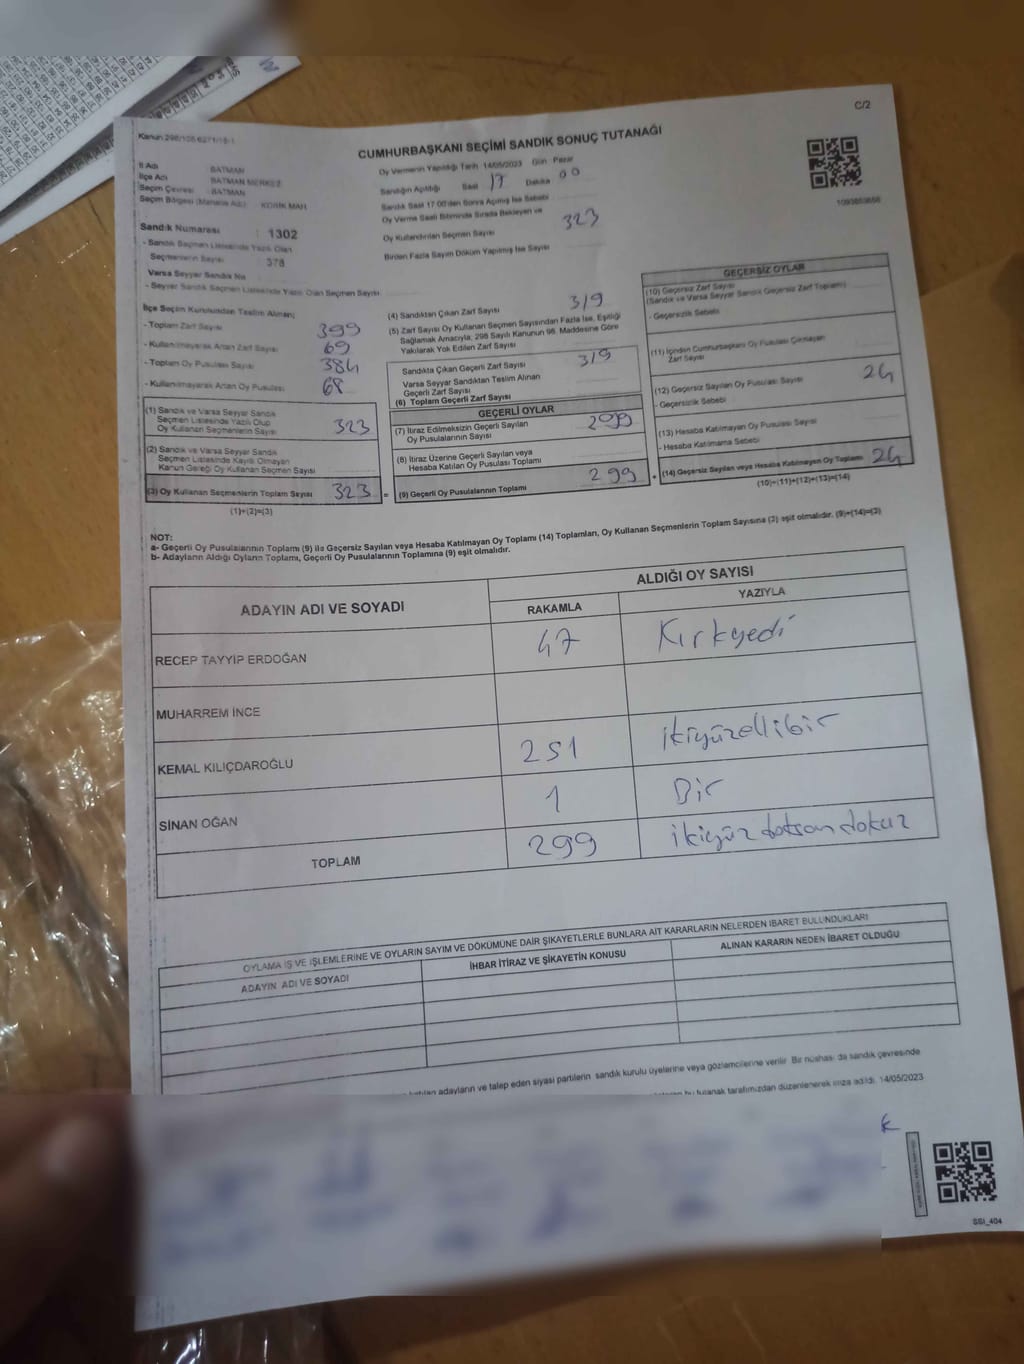 C/2
CUMHURBAŞKANI SEÇİMİ SANDIK SONUÇ TUTANAĞI
İl Adı BATMAN
İlçe Adı BATMAN MERKEZ
Seçim Çevresi : BATMAN
Seçim Bölgesi (Mahalle Adı) : KORİK MAH.
Oy Vermenin Yapıldığı Tarih 14/05/2023 Gün Pazar
Sandığın Açıldığı Saat 17 Dakika 00
Sandık Saat 17.00'den Sonra Açılmış İse Sebebi
Oy Verme Saati Bitiminde Sırada Bekleyen ve
Oy Kullandırılan Seçmen Sayısı 323
Birden Fazla Sayım Döküm Yapılmış İse Sayısı
Sandık Numarası : 1302
- Sandık Seçmen Listesinde Yazılı Olan
Seçmenlerin Sayısı : 378
Varsa Seyyar Sandık No
- Seyyar Sandık Seçmen Listesinde Yazılı Olan Seçmen Sayısı
İlçe Seçim Kurulundan Teslim Alınan;
- Toplam Zarf Sayısı 399
- Kullanılmayarak Artan Zarf Sayısı 69
- Toplam Oy Pusulası Sayısı 384
- Kullanılmayarak Artan Oy Pusulası 68
(1) Sandık ve Varsa Seyyar Sandık
Seçmen Listesinde Yazılı Olup
Oy Kullanan Seçmenlerin Sayısı 323
(2) Sandık ve Varsa Seyyar Sandık
Seçmen Listesinde Kayıtlı Olmayan
Kanun Gereği Oy Kullanan Seçmen Sayısı
(3) Oy Kullanan Seçmenlerin Toplam Sayısı 323 =
(1)+(2)=(3)
(4) Sandıktan Çıkan Zarf Sayısı 319
(5) Zarf Sayısı Oy Kullanan Seçmen Sayısından Fazla İse, Eşitliği
Sağlamak Amacıyla, 298 Sayılı Kanunun 98. Maddesine Göre
Yakılarak Yok Edilen Zarf Sayısı
Sandıkta Çıkan Geçerli Zarf Sayısı 319
Varsa Seyyar Sandıktan Teslim Alınan
Geçerli Zarf Sayısı
(6) Toplam Geçerli Zarf Sayısı
GEÇERLİ OYLAR
(7) İtiraz Edilmeksizin Geçerli Sayılan
Oy Pusulalarının Sayısı 299
(8) İtiraz Üzerine Geçerli Sayılan veya
Hesaba Katılan Oy Pusulası Toplamı
(9) Geçerli Oy Pusulalarının Toplamı 299 +
GEÇERSİZ OYLAR
(10) Geçersiz Zarf Sayısı
(Sandık ve Varsa Seyyar Sandık Geçersiz Zarf Toplamı)
- Geçersizlik Sebebi
(11) İçinden Cumhurbaşkanı Oy Pusulası Çıkmayan
Zarf Sayısı
(12) Geçersiz Sayılan Oy Pusulası Sayısı 24
- Geçersizlik Sebebi
(13) Hesaba Katılmayan Oy Pusulası Sayısı
- Hesaba Katılmama Sebebi
(14) Geçersiz Sayılan veya Hesaba Katılmayan Oy Toplamı 24
(10)+(11)+(12)+(13)=(14)
NOT:
a- Geçerli Oy Pusulalarının Toplamı (9) ile Geçersiz Sayılan veya Hesaba Katılmayan Oy Toplamı (14) Toplamları, Oy Kullanan Seçmenlerin Toplam Sayısına (3) eşit olmalıdır. (9)+(14)=(3)
b- Adayların Aldığı Oyların Toplamı, Geçerli Oy Pusulalarının Toplamına (9) eşit olmalıdır.
ADAYIN ADI VE SOYADI ALDIĞI OY SAYISI
RAKAMLA YAZIYLA
RECEP TAYYİP ERDOĞAN 47 Kırkyedi
MUHARREM İNCE
KEMAL KILIÇDAROĞLU 251 ikiyüzellibir
SİNAN OĞAN 1 Bir
TOPLAM 299 ikiyüz doksan dokuz
OYLAMA İŞ VE İŞLEMLERİNE VE OYLARIN SAYIM VE DÖKÜMÜNE DAİR ŞİKAYETLERLE BUNLARA AİT KARARLARIN NELERDEN İBARET BULUNDUKLARI
ADAYIN ADI VE SOYADI İHBAR İTİRAZ VE ŞİKAYETİN KONUSU ALINAN KARARIN NEDEN İBARET OLDUĞU
adayların ve talep eden siyasi partilerin sandık kurulu üyelerine veya gözlemcilerine verilir. Bir nüshası da sandık çevresinde
bu tutanak tarafımızdan düzenlenerek imza edildi. 14/05/2023
SSI_404